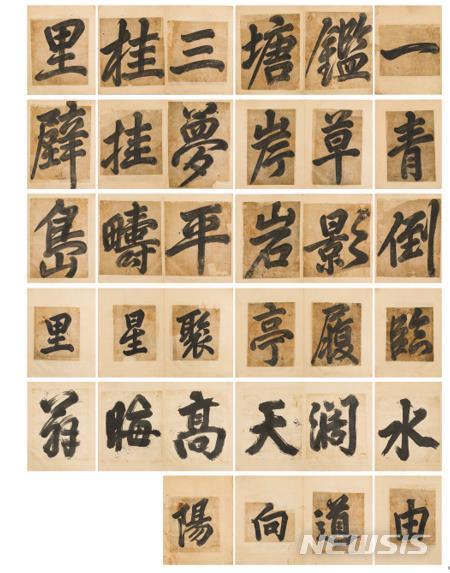 一鑑塘三桂里
青草岸夢挂壁
倒影岩平疇島
臨履亭聚星里
水濶天高晦翁
由道向陽
NEWSIS